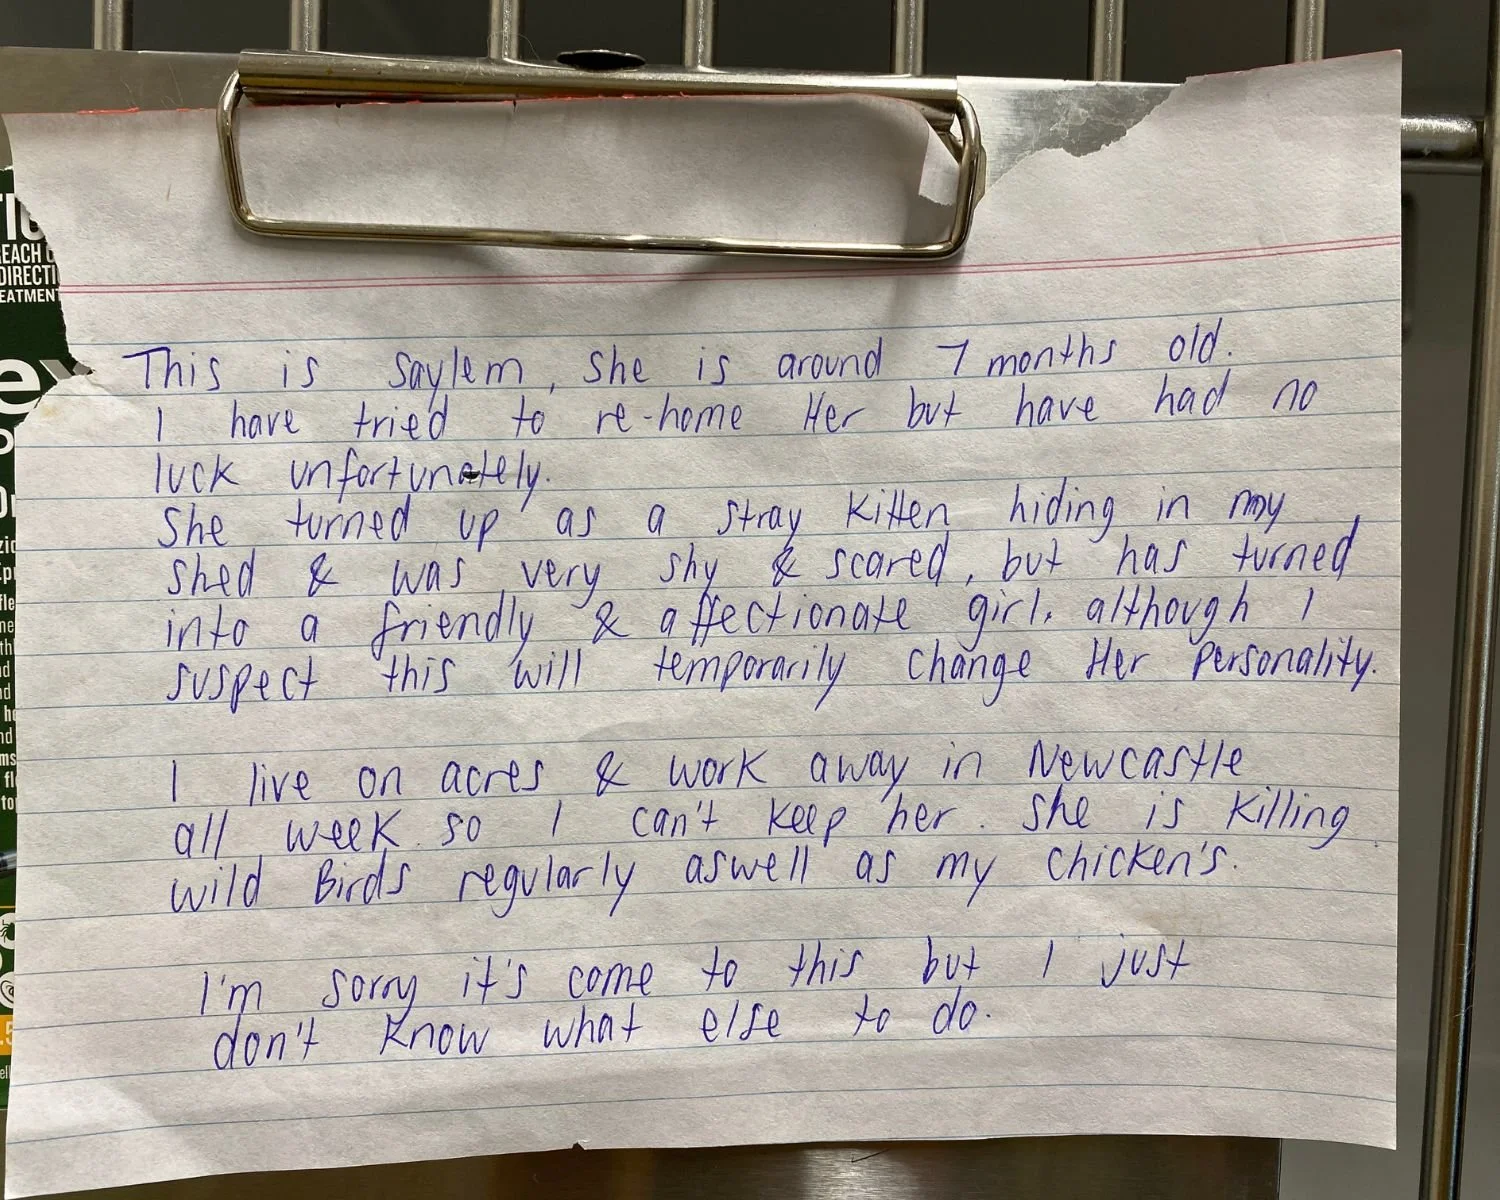 This is Saylem, She is around 7 months old.
I have tried to re-home Her but have had no
luck unfortunately.
She turned up as a stray kitten hiding in my
shed & was very shy & scared, but has turned
into a friendly & affectionate girl. although I
suspect this will temporarily change Her personality.
I live on acres & work away in Newcastle
all week so I can't keep her. She is killing
wild Birds regularly aswell as my chicken's.
I'm sorry it's come to this but I just
don't know what else to do.
EACH
DIRECTI
EATMENT